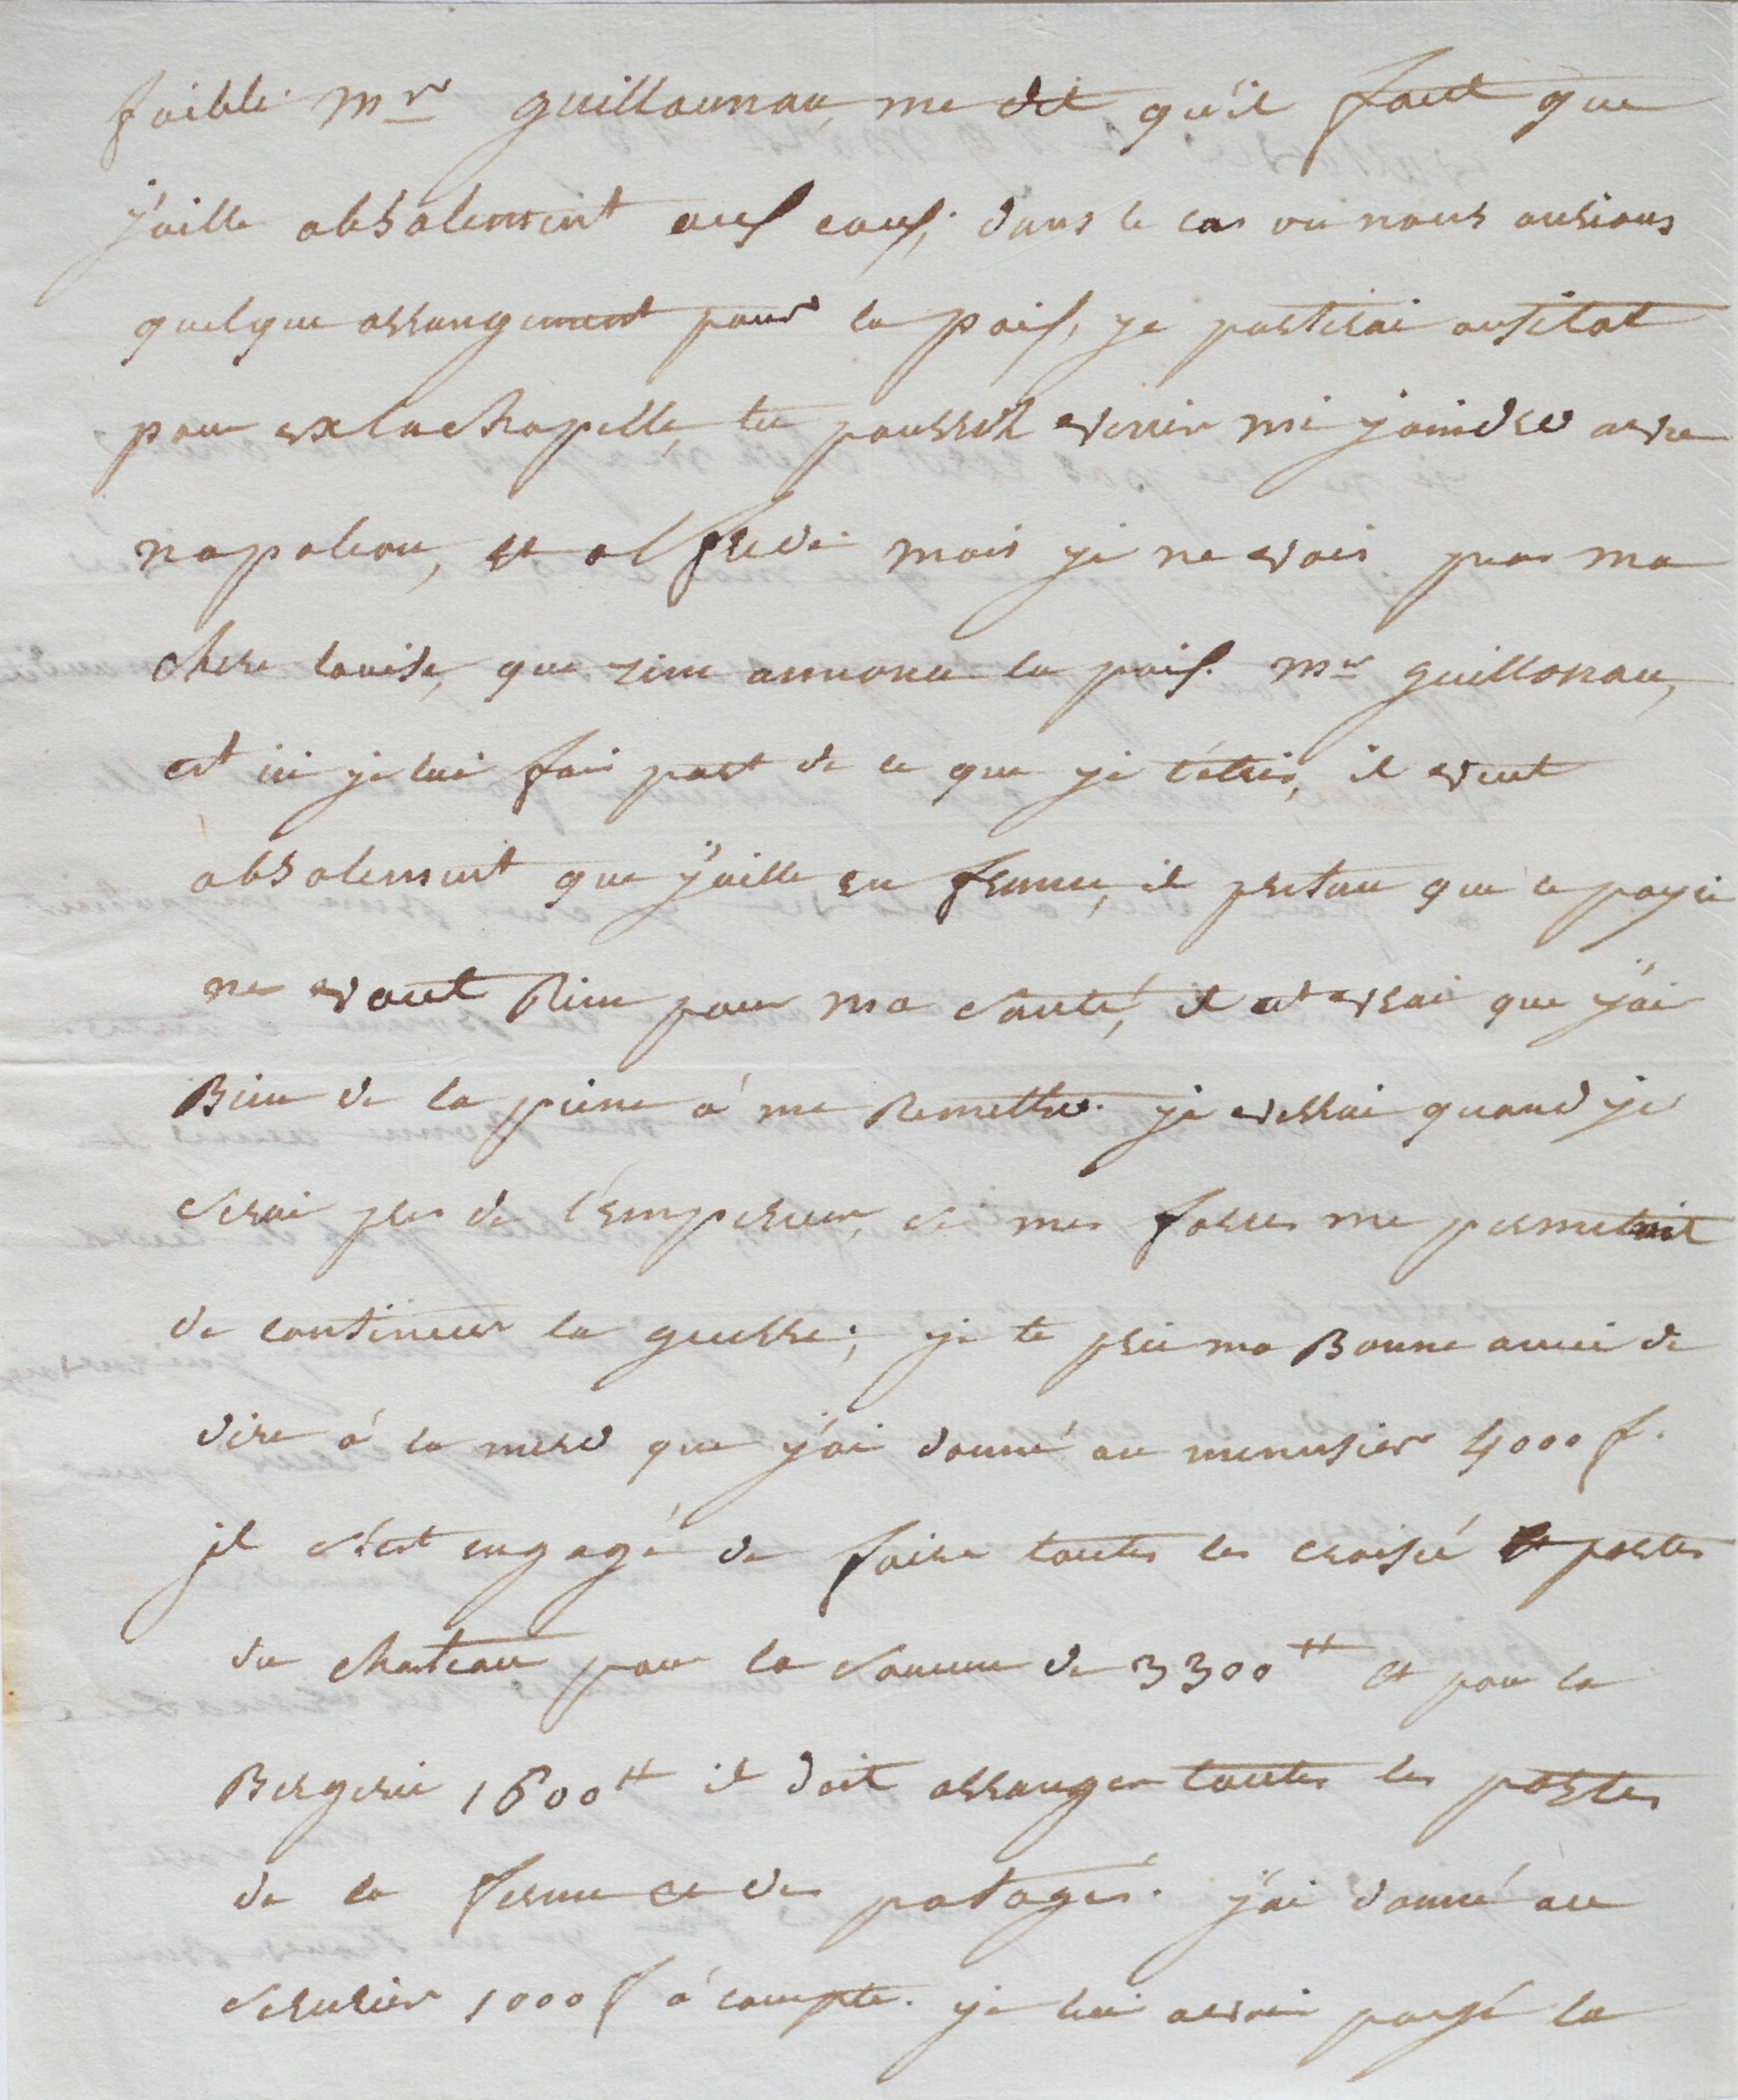 foible. Mr guillounau, me dit qu'il faut que
j'aille absolement aux eaux, dans le cas ou nous ausions
quelque arrangement pour la paix, je partirai ausitot
pour exlachapelle, tu pourroit venir mi joindre avec
napoleon, et alfrede mais je ne vois pas ma
chere louise, que rien annonce la paix. Mr guillonau,
est ici je lui fais part de ce que je t'écris, il veut
absolement que j'aille en france, il pretan que ce payi
ne vaut Rien pour ma santé, il est vrai que j'ai
Bien de la peine a me Remettre. je verrai quand je
serai pres de l'empereur, si mes forces me permetrait
de continuer la guerre; je te prie ma Bonne amie de
dire a ta mere que j'ai donné au menusier 4000 f.
il s'est engagé de faire toutes les croisé et portes
du chateau pour la somme de 3300tt et pour la
Bergerie 1600tt il doit arranger toutes les portes
de la ferme et des potager. j'ai donné au
serurier 1000 f a compte. je lui avoi passé la